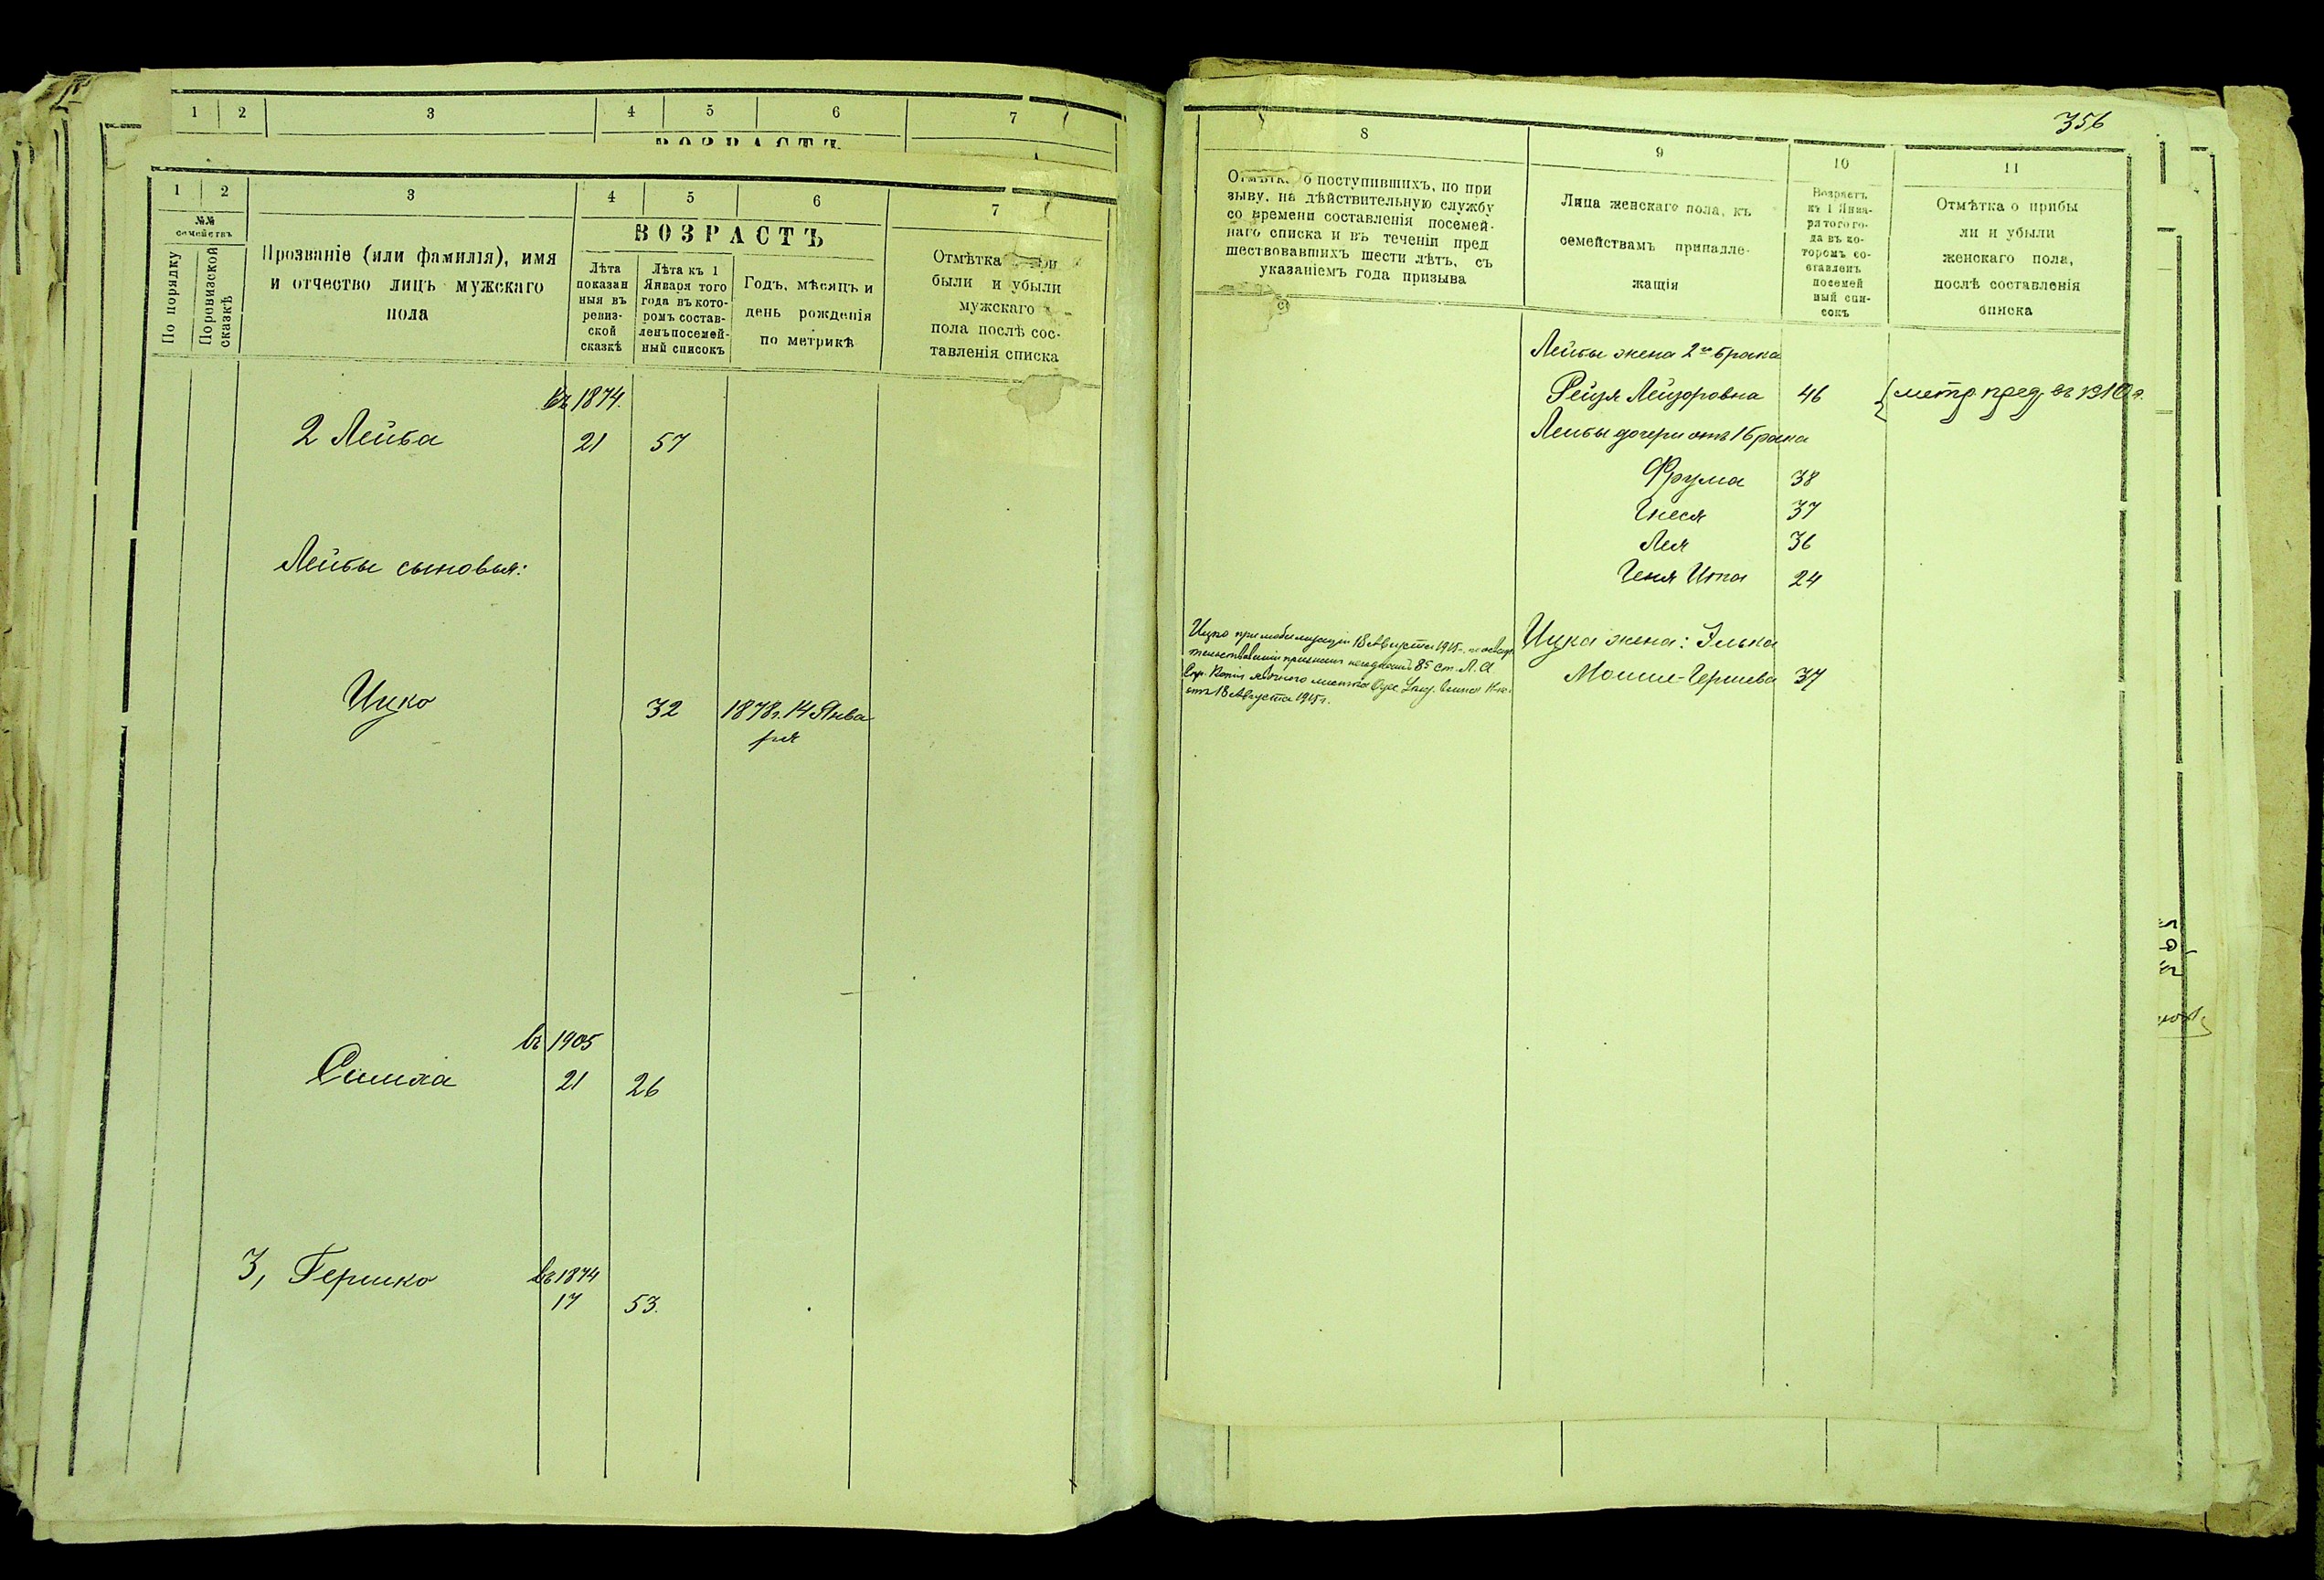 1 2 3 4 5 6 7
ВОЗРАСТЪ
1 2 3 4 5 6 7
№№ семействъ
По порядку
По ревизской сказкѣ
Прозваніе (или фамилія), имя
и отчество лицъ мужскаго
пола
ВОЗРАСТЪ
Лѣта
показан
ныя въ
ревиз-
ской
сказкѣ
Лѣта къ 1
Января того
года въ кото-
ромъ состав-
ленъ посемей-
ный списокъ
Годъ, мѣсяцъ и
день рожденія
по метрикѣ
Отмѣтка
были и убыли
мужскаго
пола послѣ сос-
тавленія списка
въ 1874.
2 Лейба 21 57
Лейбы сыновья:
Ицко 32 1878 г. 14 Янва
ря
въ 1905
Симха 21 26
3, Гершко въ 1874
17 53.
356
8 9 10 11
о поступившихъ, по при
зыву, на дѣйствительную службу
со времени составленія посемей-
наго списка и въ теченіи пред
шествовавшихъ шести лѣтъ, съ
указаніемъ года призыва
Лица женскаго пола, къ
семействамъ принадле-
жащія
Возрастъ
къ 1 Янва-
ря того го-
да въ ко-
торомъ со-
ставленъ
посемей
ный спи-
сокъ
Отмѣтка о прибы
ли и убыли
женскаго пола,
послѣ составленія
списка
Лейбы жена 2го брака
Рейзя Лейзоровна 46 метр. пред. въ 1910 г.
Лейбы дочери отъ 1 брака
Фрума 38
Гнеся 37
Лея 36
Геня Ита 24
Ицко при мобилизаціи 18 Августа 1915 г. по освидѣ
тельствованіи признанъ 85 ст. Л. А
Копія явочнаго листка
отъ 18 Августа 1915 г.
Ицка жена: Элька
Мошко-Гершева 37